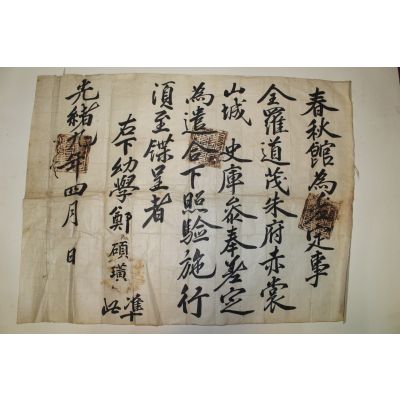 春秋館為差定事
全羅道茂朱府赤裳
山城 史庫參奉差定
為遣合下照驗施行
須至牒呈者
右下幼學鄭碩璜 准此
光緒九年四月 日